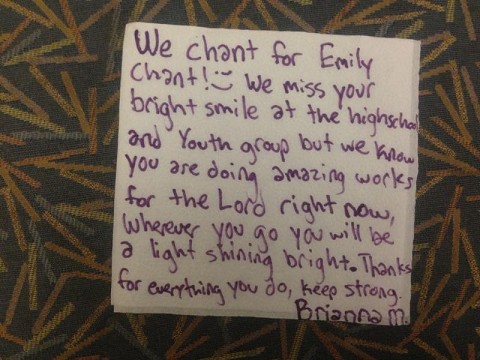 We chant for Emily
Chant! We miss your
bright smile at the highschool
and Youth group but we know
you are doing amazing works
for the Lord right now,
wherever you go you will be
a light shining bright. Thanks
for everything you do, keep strong.
Brianna M.